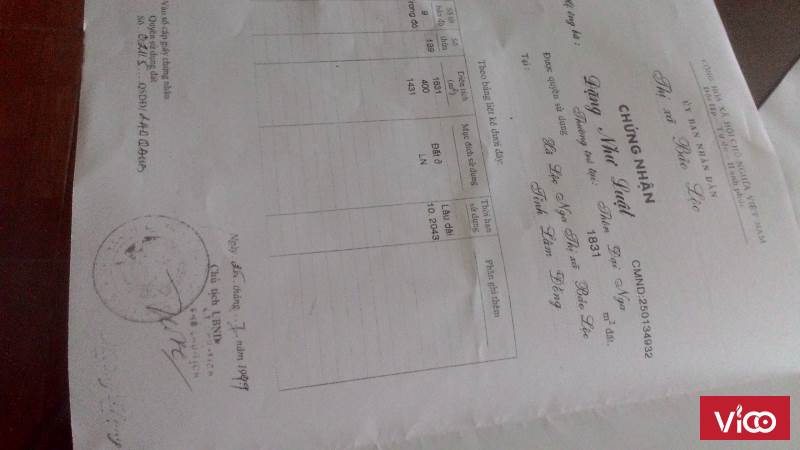 CỘNG HÒA XÃ HỘI CHỦ NGHĨA VIỆT NAM
Độc lập - Tự do - Hạnh phúc
ỦY BAN NHÂN DÂN
Thị xã Bảo Lộc
CHỨNG NHẬN
CMND:250134932
ông bà :
Đặng Như Luật
Thường trú tại: Thôn Đại Nga
Được quyền sử dụng 1831 m² đất.
Tại: Xã Lộc Nga Thị xã Bảo Lộc
Tỉnh Lâm Đồng
Theo bảng liệt kê dưới đây:
Số tờ bản đồ Số thửa Diện tích (m²) Mục đích sử dụng Thời hạn sử dụng Phần ghi thêm
9 199 1831
trong đó 400 Đất ở Lâu dài
1431 LN 10. 2043
Ngày tháng 7 năm 1999
Chủ tịch UBND
Vào sổ cấp giấy chứng nhận
Quyền sử dụng đất
Số QSDĐ/
VICO